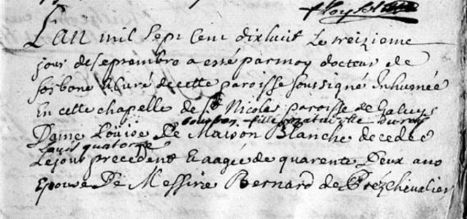 Lan mil Sept Cent dixhuit Le treizieme
jour de septembre a esté par moy docteur de
sorbone et curé de cette paroisse soussigné Inhumée
En cette chapelle de St Nicolas paroisse de
fille naturelle
Dame Louise De Maison Blanche decedée
Louis quatorze
Le jour precedent Et aagée de quarente Deux ans
Epouse De Messire Bernard de Prez Chevalier